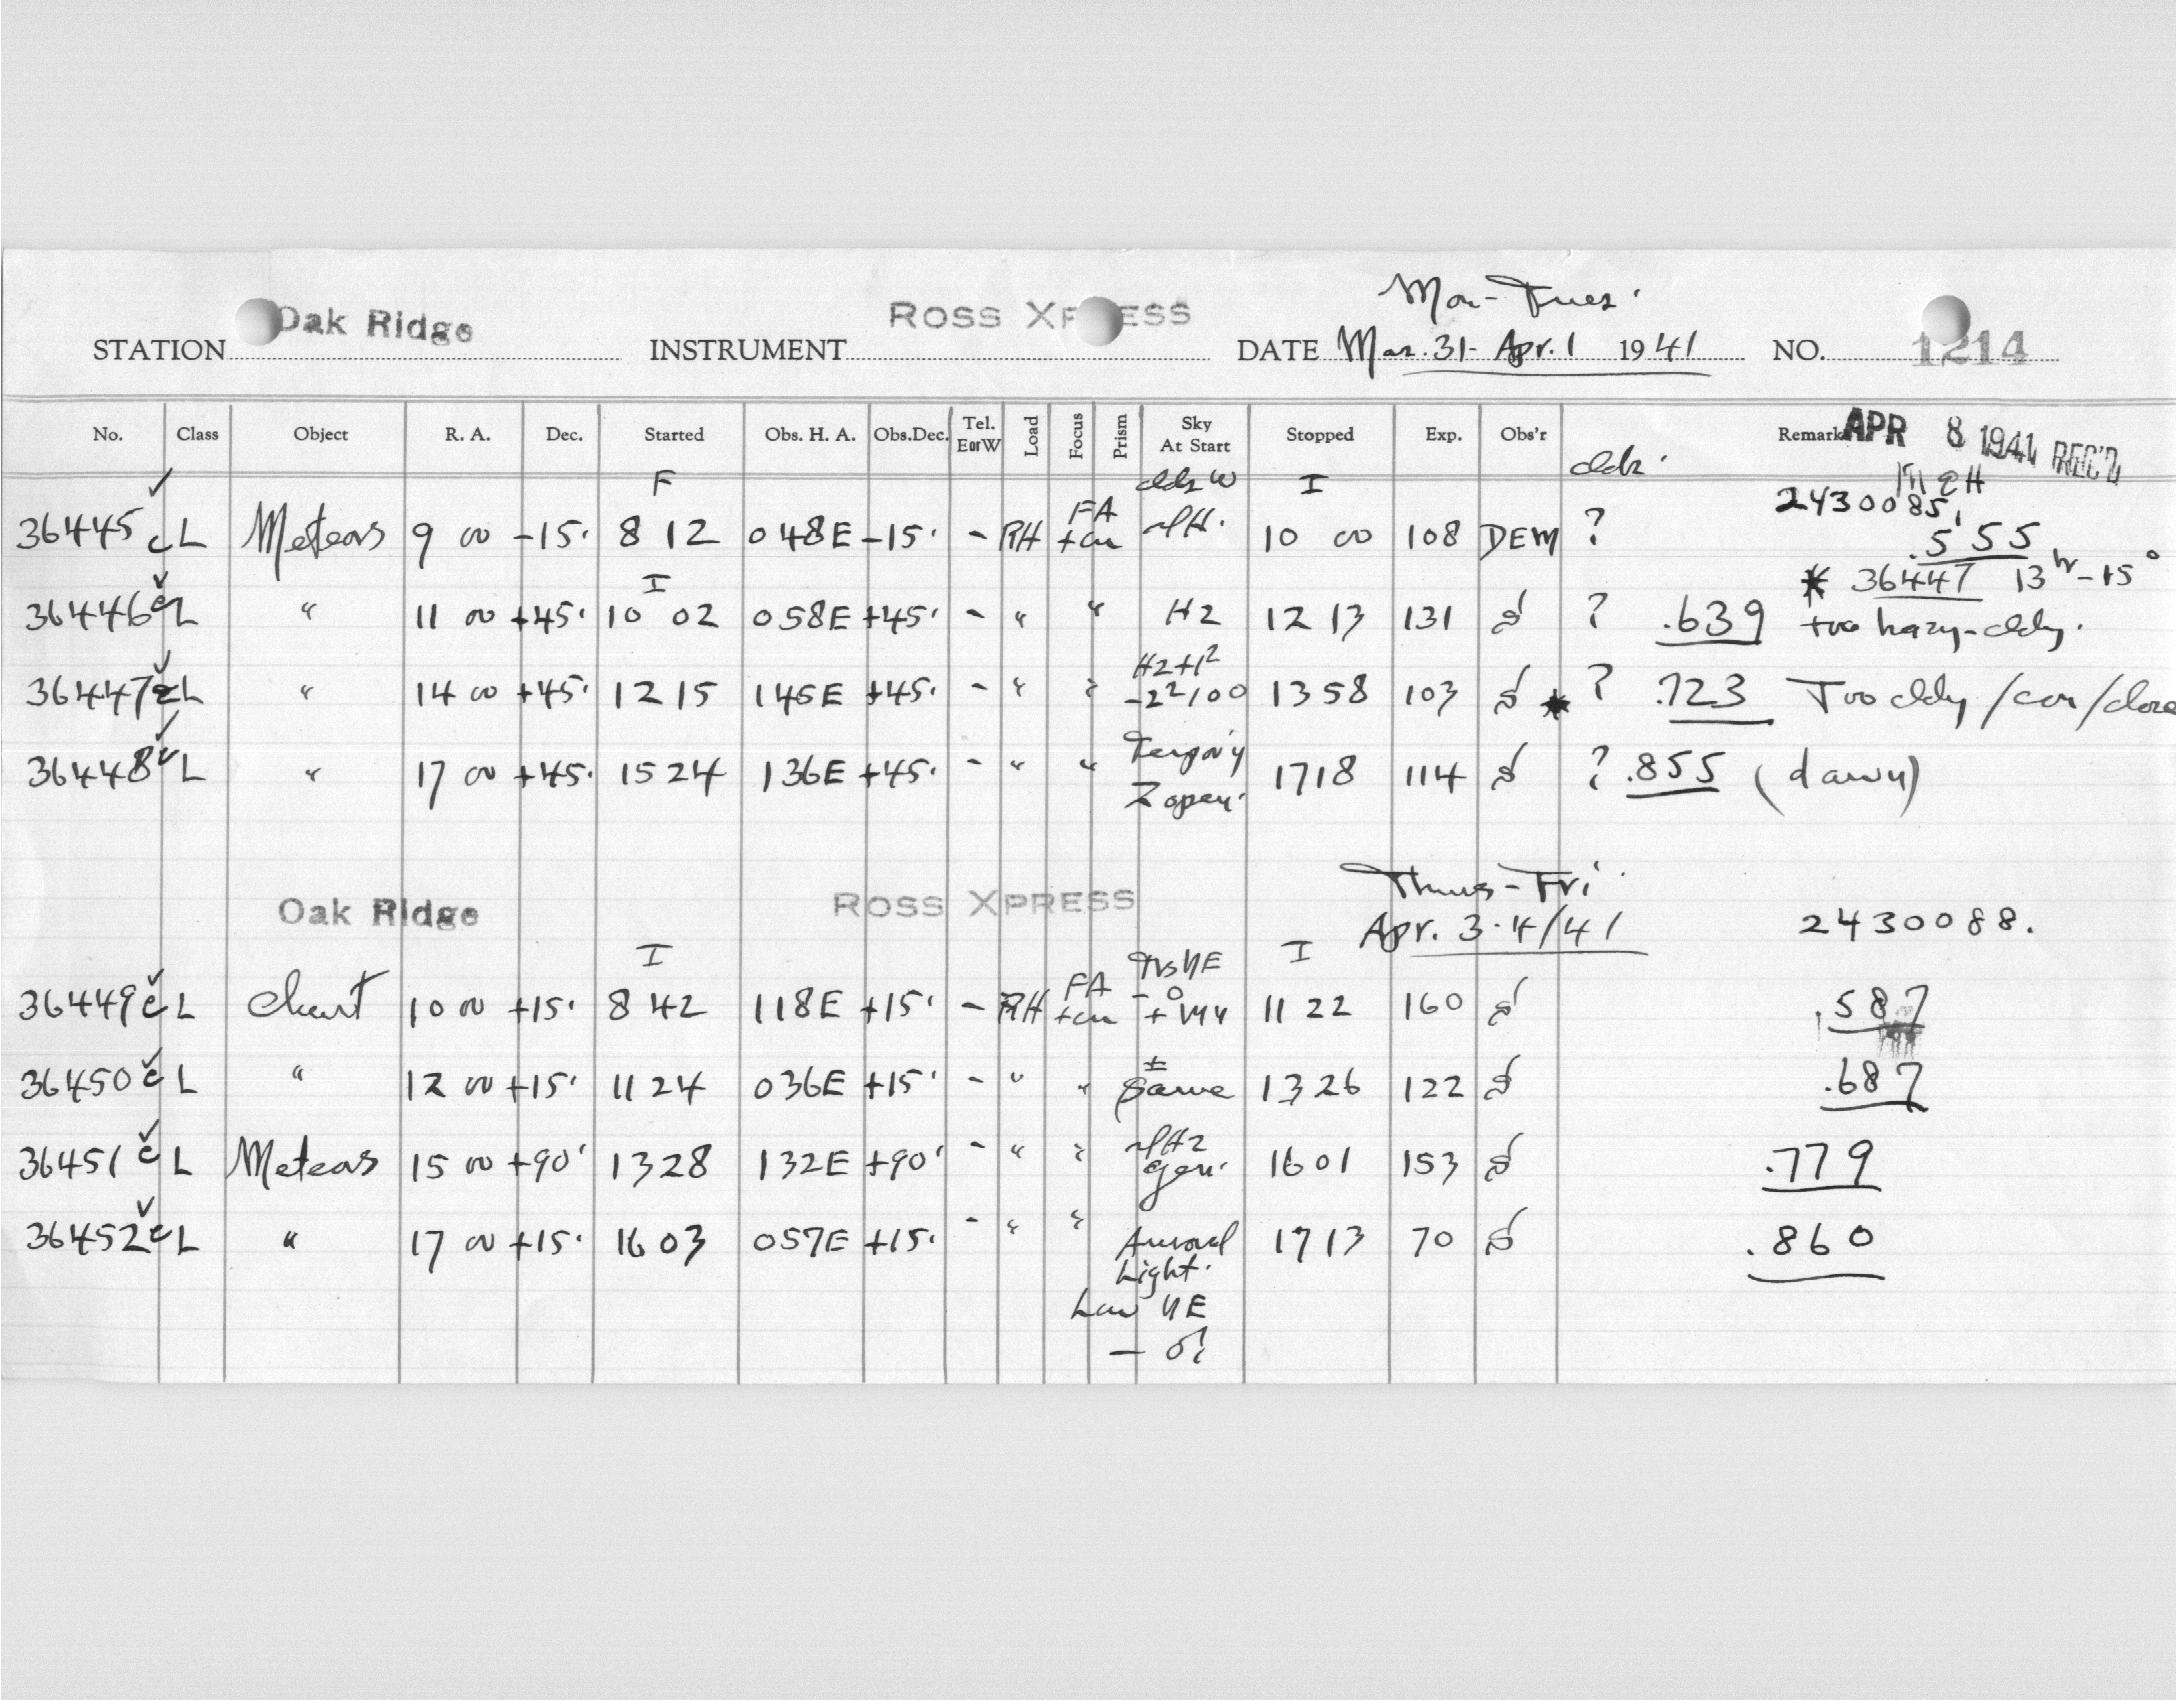 Mon-Tues.
STATION Oak Ridge INSTRUMENT ROSS XPRESS DATE Mar. 31 - Apr. 1 1941 NO. 1214
No. Class Object R. A. Dec. Started Obs. H. A. Obs.Dec. Tel. EorW Load Focus Prism Sky At Start Stopped Exp. Obs'r Remark APR 8 1941 REC'D
F cldz W I cldz.
36445 c L Meteors 9 00 -15. 8 12 048E -15. - RH FA + 10 00 108 DEM ? 2430085. .555
I * 36447 13hr -15°
36446 c L " 11 00 +45. 10 02 058E +45. - " " H2 12 13 131 ? .639 too hazy-cldy.
36447 c L " 14 00 +45. 12 15 145E +45. - " " H2+1² -2²/100 13 58 103 * ? .723 Too cldy /
36448 c L " 17 00 +45. 15 24 136E +45. - " " Z open. 17 18 114 ? .855 (dawn)
Thurs-Fri.
Oak Ridge ROSS XPRESS Apr. 3-4/41 2430088.
I I
36449 c L Chart 10 00 +15. 8 42 118E +15. - RH FA + 11 22 160 .587
36450 c L " 12 00 +15. 11 24 036E +15. - " " ± Same 13 26 122 .687
36451 c L Meteors 15 00 +90. 13 28 132E +90. - " " gen. 16 01 153 .779
36452 c L " 17 00 +15. 16 03 057E +15. - " " Auroral Light. 17 13 70 .860
Low NE